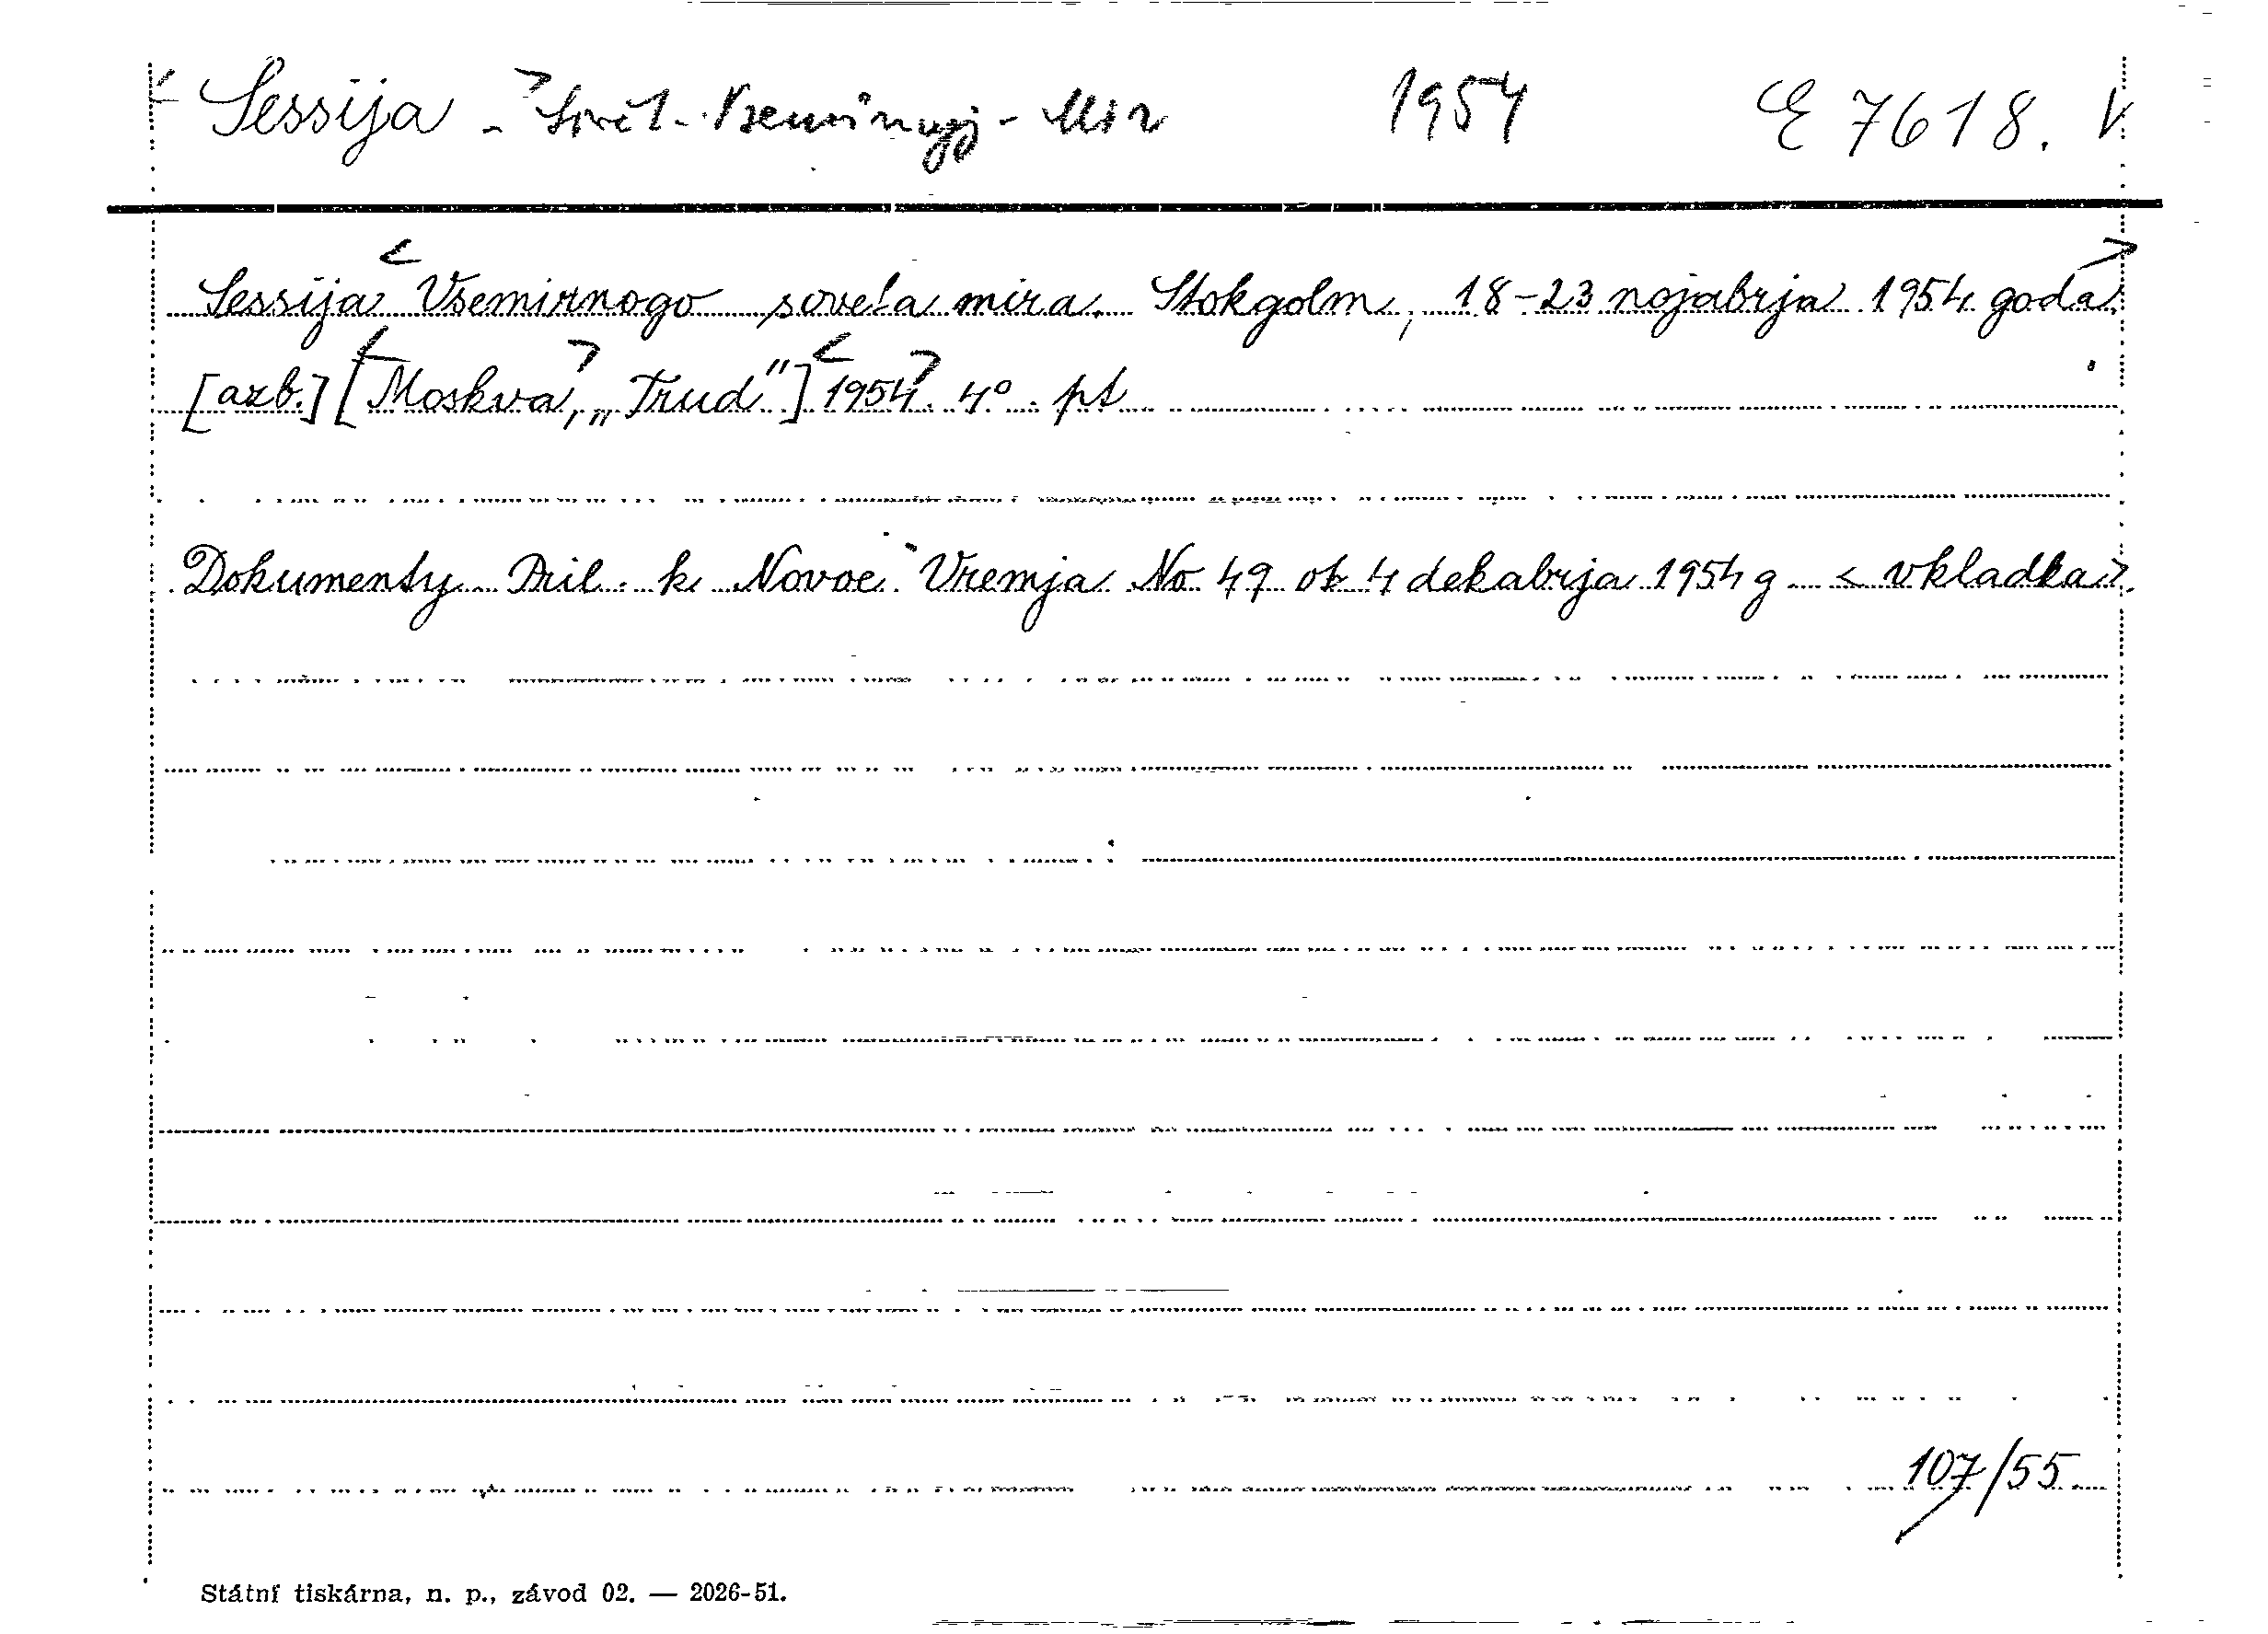 Sessija - Svět - Vsemirnyj - Mir 1954 E 7618. V
Sessija < Vsemirnogo soveta mira. Stokgolm, 18-23 nojabrja 1954 goda. >
[azb.] [< Moskva, > „Trud"] < 1954. > 4° pt
Dokumenty Pril. k Novoe Vremja No 49 ot 4 dekabrja 1954 g < vkladka >.
107/55
Státní tiskárna, n. p., závod 02. — 2026-51.